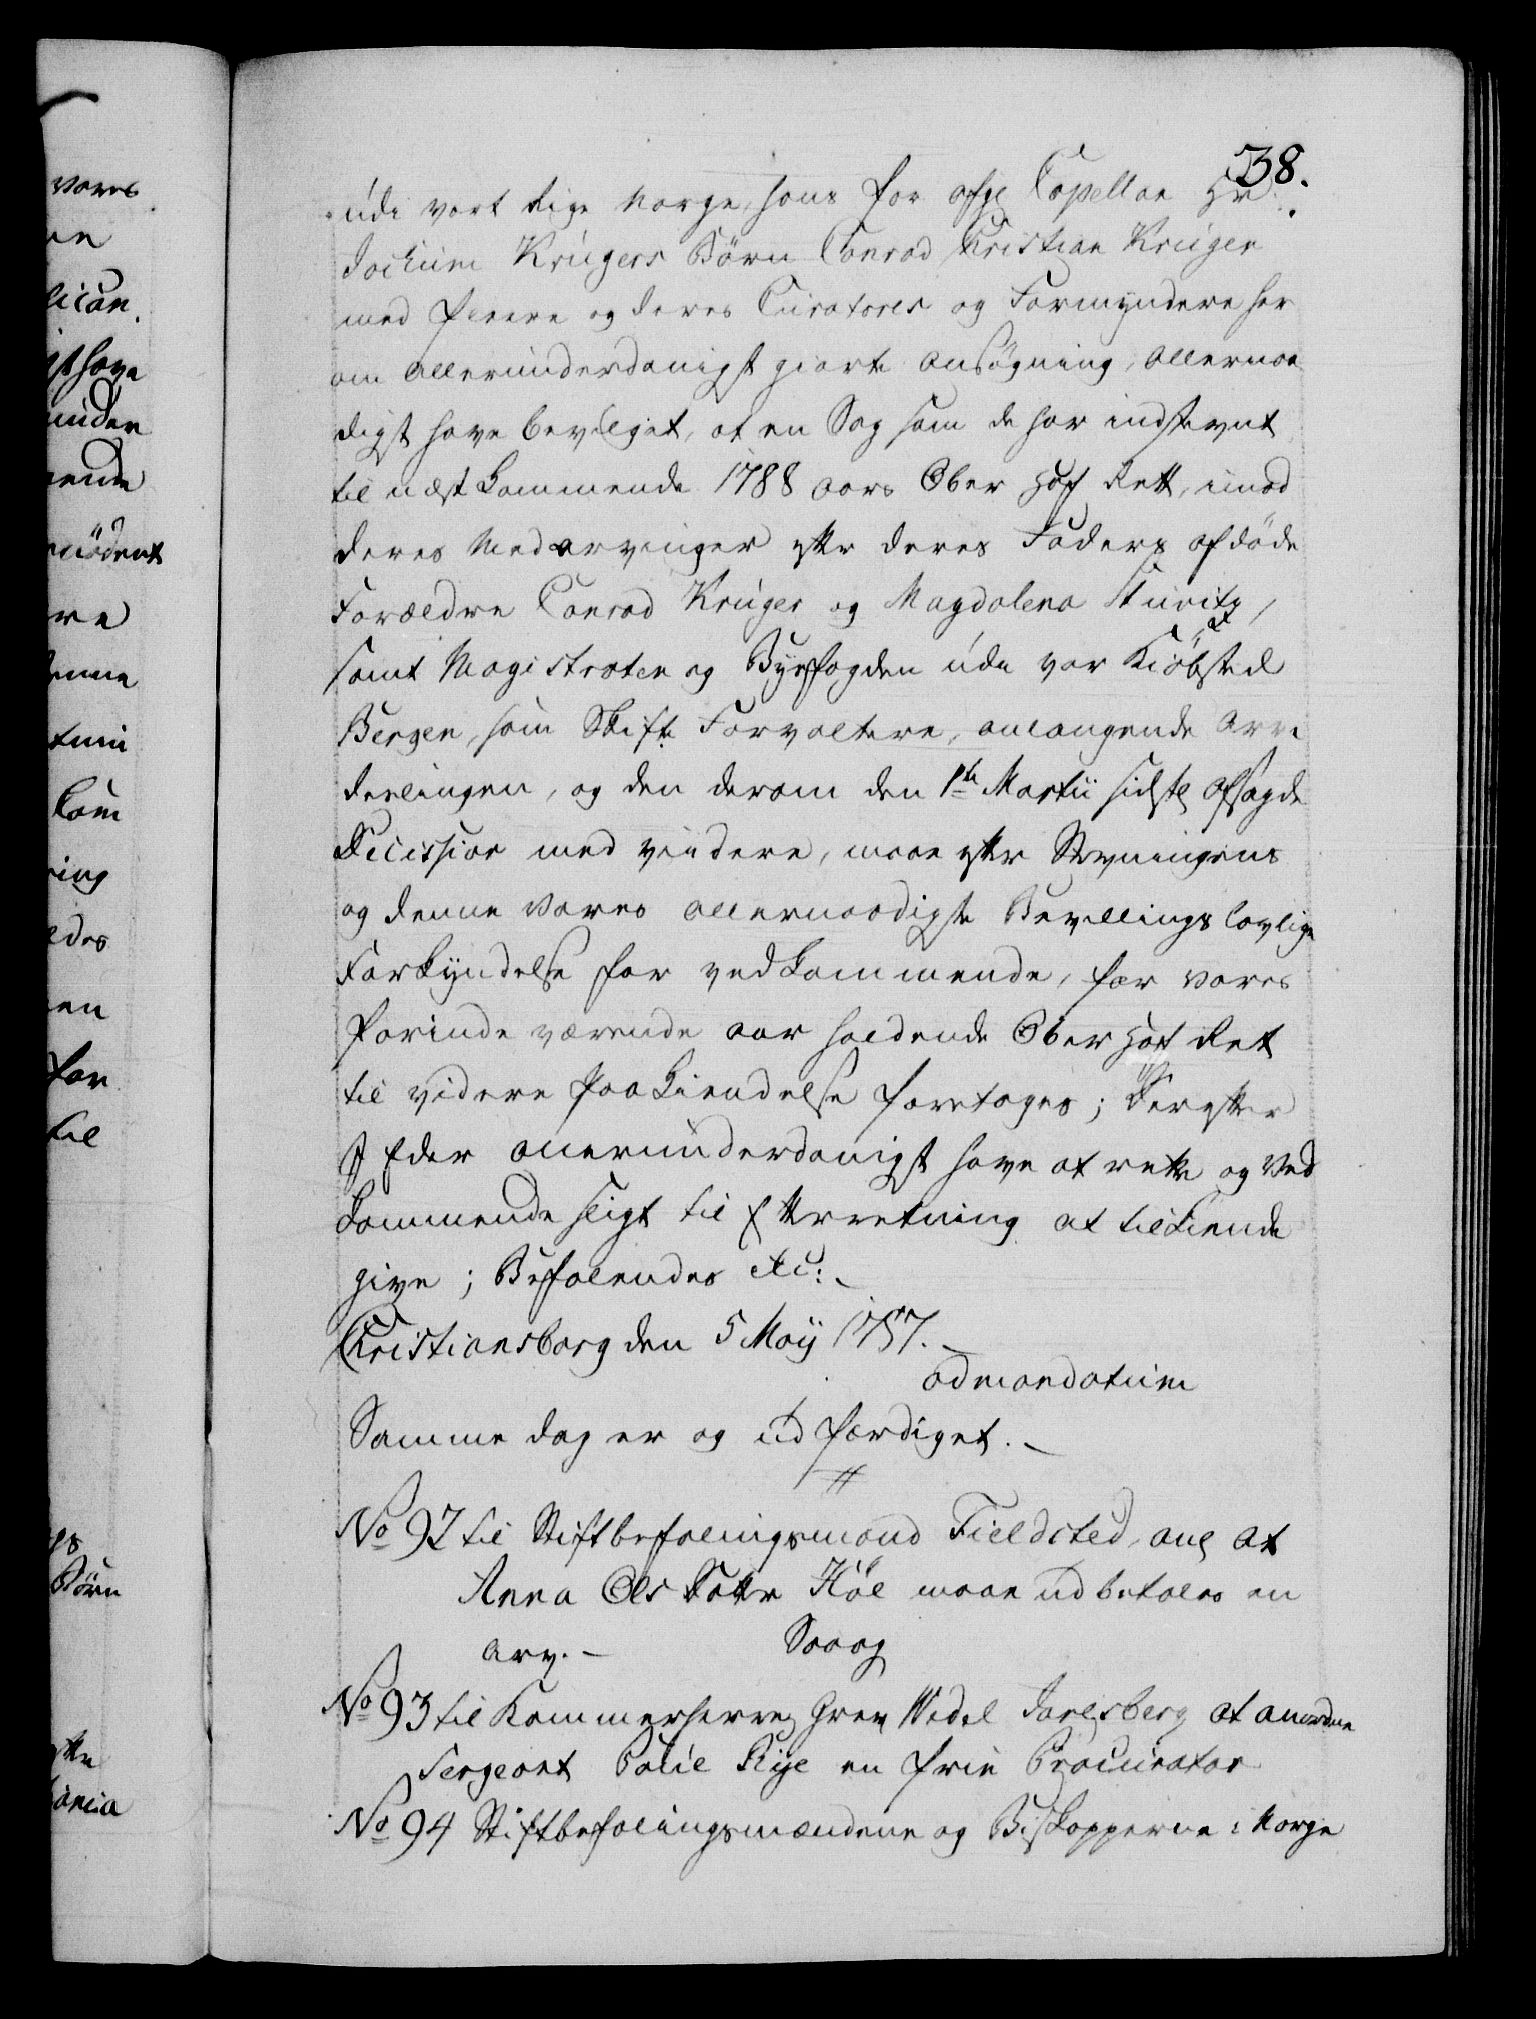 38.
udi vort Rige Norge, hans for afg: Capellan Hr:
Jochum Krügers Børn Conrad Kristian Krüger
med fleere og deres Curatores og Formyndere her
om allerunderdanigst giorte Ansøgning, allernaa
digst have bevilget, at en Sag som de har indstevnt
til næstkommende 1788 Aars Ober Hof Rett, imod
deres Medarvinger efter deres Faders afdøde
Forældre Conrad Krüger og Magdalena Sturitz,
samt Magistraten og Byefogden udi vor Kiöbsted
Bergen, som Skifte Forvaltere, anlangende Arve
deelingen, og den derom den 1te Martii sidstl: afsagde
Decission med videre, maae efter Stevningens
og denne Vores allernaadigste Bevillings lovlige
Forkyndelse for vedkommende, for vores
forinden værende aar holdende Ober Hof Ret
til videre Paakiendelse foretages; Derefter
I Eder allerunderdanigst have at rette og Ved
kommende sligt til Efterretning at tilkiende
give; Befalendes etc:
Christiansborg den 5 Maij 1787.
ad mandatum
Samme dag er og udfærdiget.
No 92 til Stiftbefalingsmand Fieldsted, anl: at
Anna Ols Datter Höl maae udbetales en
Arv.
Saaog
No 93 til Kammerherre Grev Wedel Jarlsberg at anordne
Sergeant Rye en frie Procurator
No 94 Stiftbefalingsmændene og Biskopperne i Norge
vores